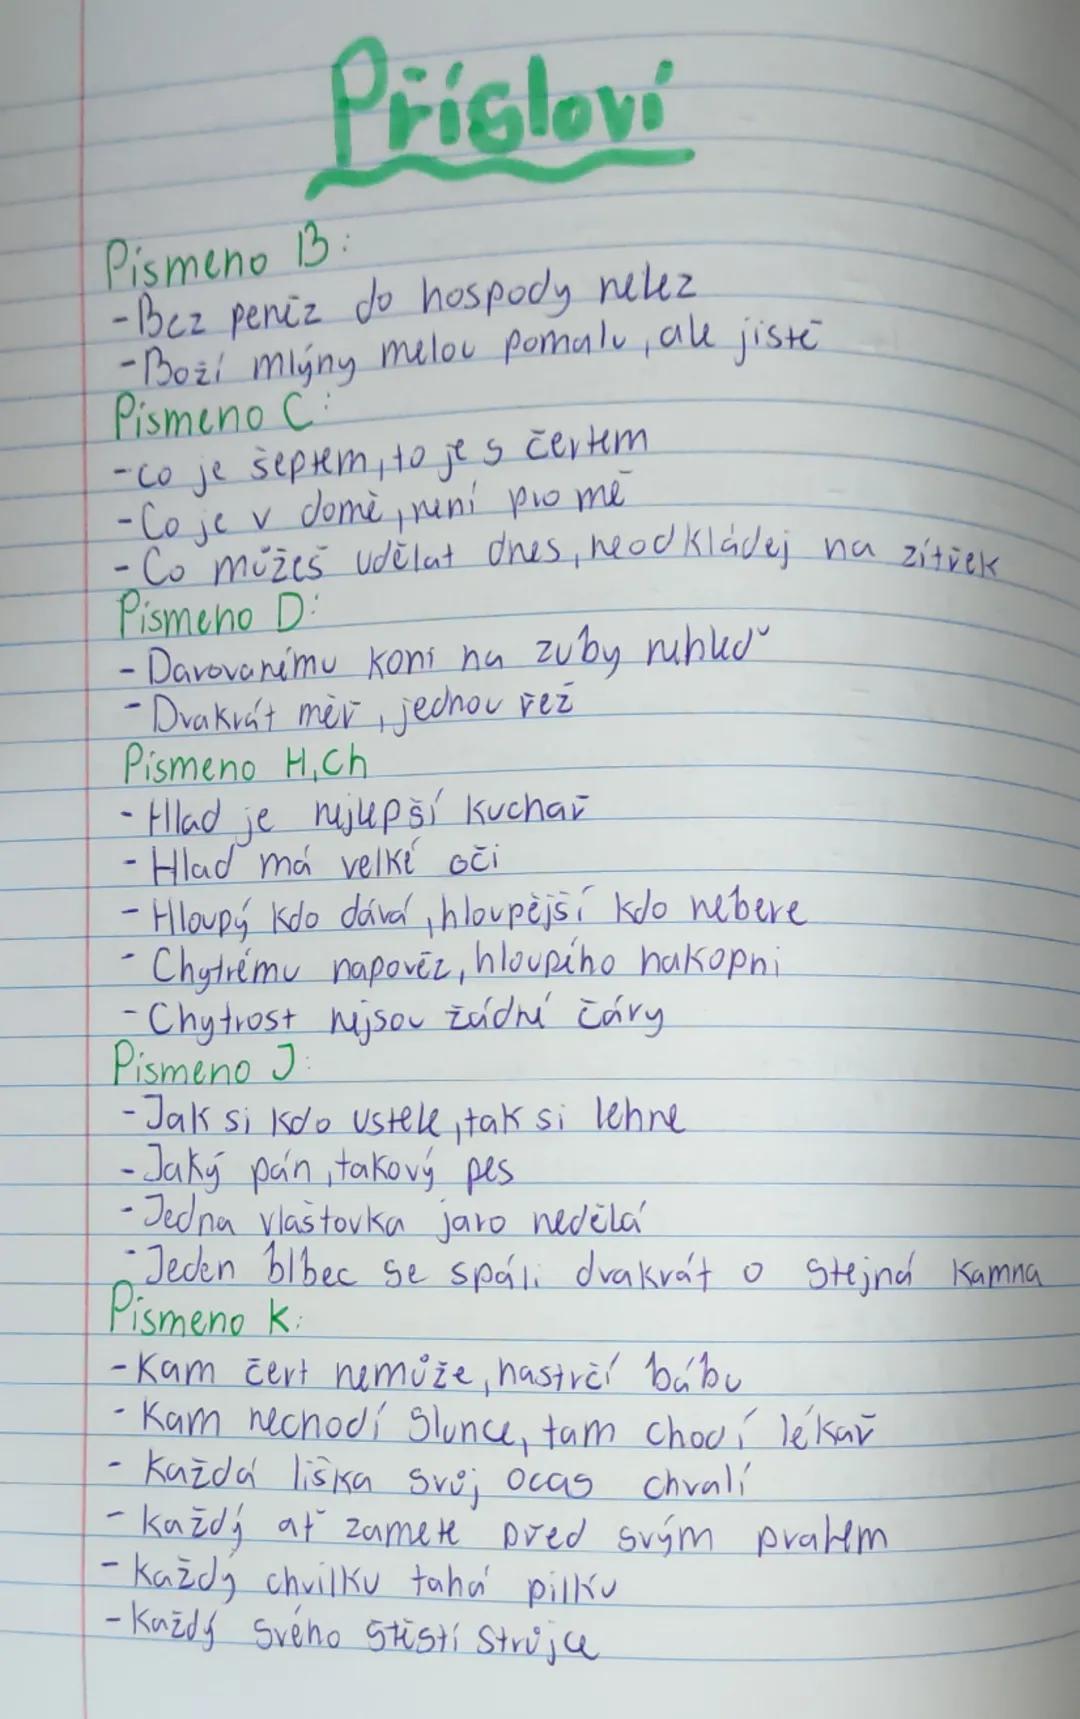 Přísloví
Písmeno B:
-Bez peněz do hospody nelez
-Boží mlýny melou pomalu, ale jistě
Písmeno C:
-co je šeptem, to je s čertem
-Co je v domě, není pro mě
-Co můžeš udělat dnes, neodkládej na zítřek
Písmeno D:
-Darovanému koni na zuby nehleď
-Dvakrát měř, jednou řež
Písmeno H,Ch
-Hlad je nejlepší kuchař
-Hlad má velké oči
-Hloupý kdo dává, hloupější kdo nebere
-Chytrému napověz, hloupého nakopni
-Chytrost nejsou žádné čáry
Písmeno J:
-Jak si kdo ustele, tak si lehne
-Jaký pán, takový pes
-Jedna vlaštovka jaro nedělá
-Jeden blbec se spálí dvakrát o stejná kamna
Písmeno K:
-Kam čert nemůže, nastrčí bábu
-Kam nechodí slunce, tam chodí lékař
-Každá liška svůj ocas chválí
-Každý ať zamete před svým prahem
-Každý chvilku tahá pilku
-Každý svého štěstí strůjce